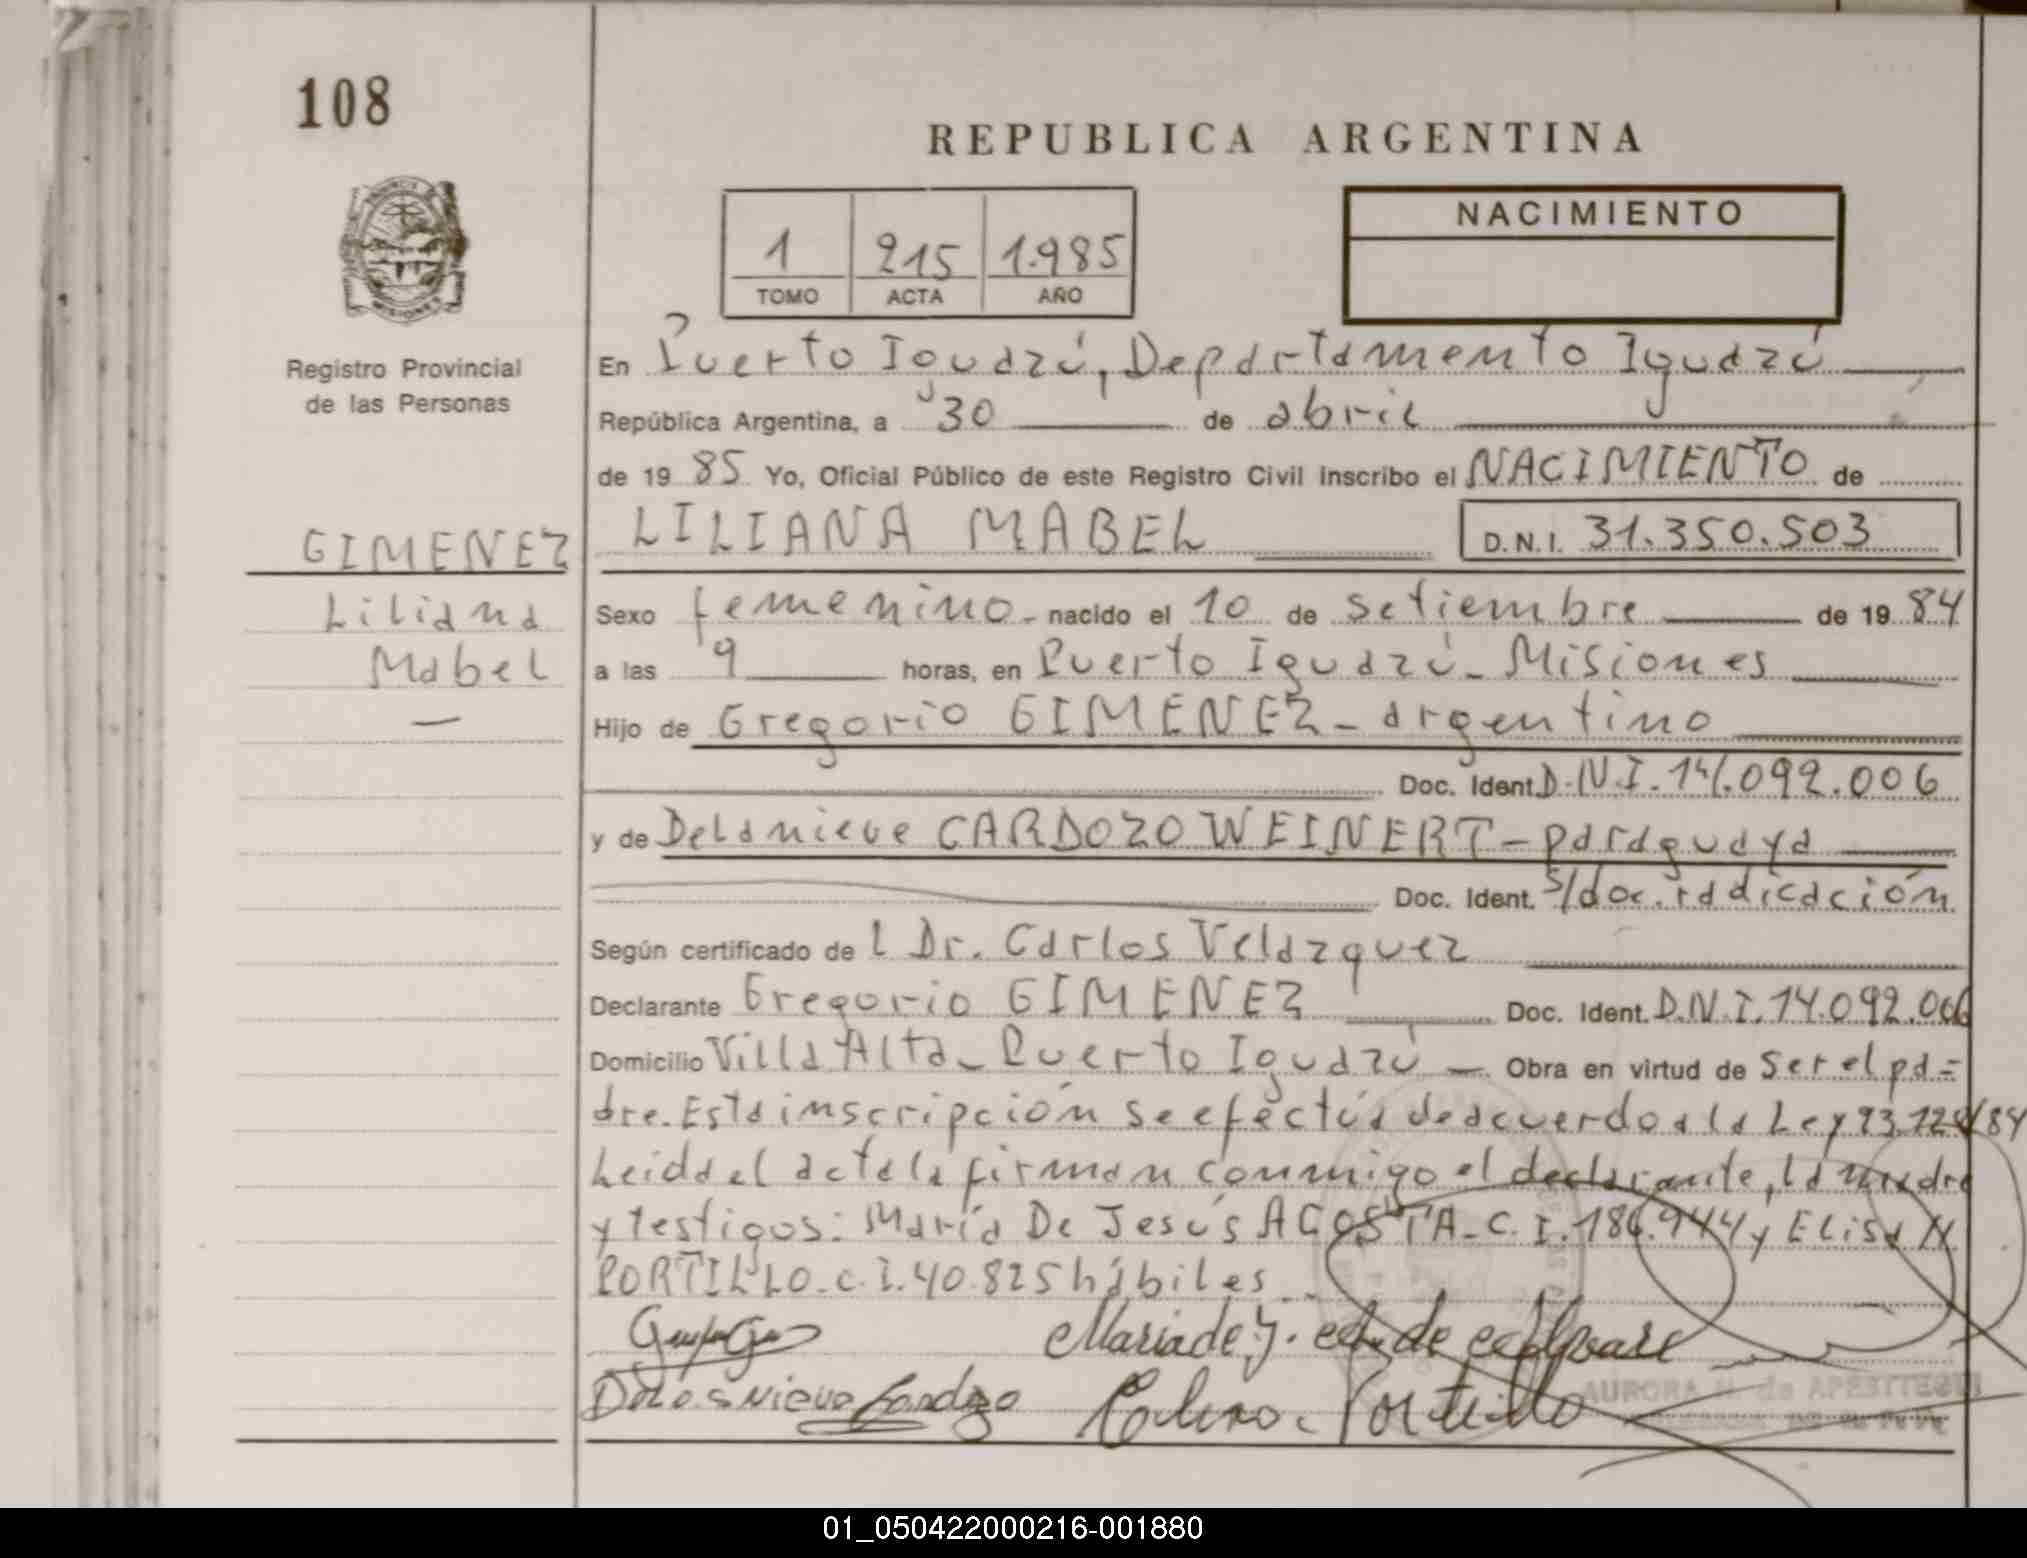 108
REPUBLICA ARGENTINA
1 215 1.985
TOMO ACTA AÑO
NACIMIENTO
MISIONES
Registro Provincial
de las Personas
En Puerto Iguazú, Departamento Iguazú
República Argentina, a 30 de abril
de 19 85 Yo, Oficial Público de este Registro Civil inscribo el NACIMIENTO de
GIMENEZ
LILIANA MABEL D.N.I. 31.350.503
Liliana
Mabel
Sexo femenino - nacido el 10 de setiembre de 19 84
a las 9 horas, en Puerto Iguazú - Misiones
Hijo de Gregorio GIMENEZ - argentino
Doc. Ident. D.N.I. 14.092.006
y de Delanieve CARDOZO WEINERT - paraguaya
Doc. Ident. s/doc. radicación
Según certificado de l Dr. Carlos Velazquez
Declarante Gregorio GIMENEZ Doc. Ident. D.N.I. 14.092.006
Domicilio Villa Alta - Puerto Iguazú - Obra en virtud de ser el pa=
dre. Esta inscripción se efectúa de acuerdo a la Ley /84
Leida el acta la firman conmigo el declarante, la madre
y testigos: María De Jesús ACOSTA - C.I. 186.944 y Elisa
PORTILLO - C.I. 40.825 hábiles
Maria de J. de
Nieve Cardozo Portillo
AURORA de APESTTEGUI
01_050422000216-001880